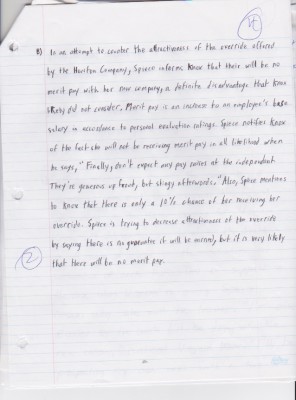 8) In an attempt to counter the attractiveness of the override offered
by the Houston Company, Spiece informs Knox that their will be no
merit pay with her new company, a definite disadvantage that Knox
likely did not consider. Merit pay is an increase to an employee's base
salary in accordance to personal evaluation ratings. Spiece notifies Knox
of the fact she will not be receiving merit pay in all likelihood when
he says, "Finally, don't expect any pay raises at the independent.
They're generous up front, but stingy afterwards." Also, Spiece mentions
to Knox that there is only a 10% chance of her receiving her
override. Spiece is trying to decrease attractiveness of the override
by saying there is no guarantee it will be earned, but it is very likely
that there will be no merit pay.
2